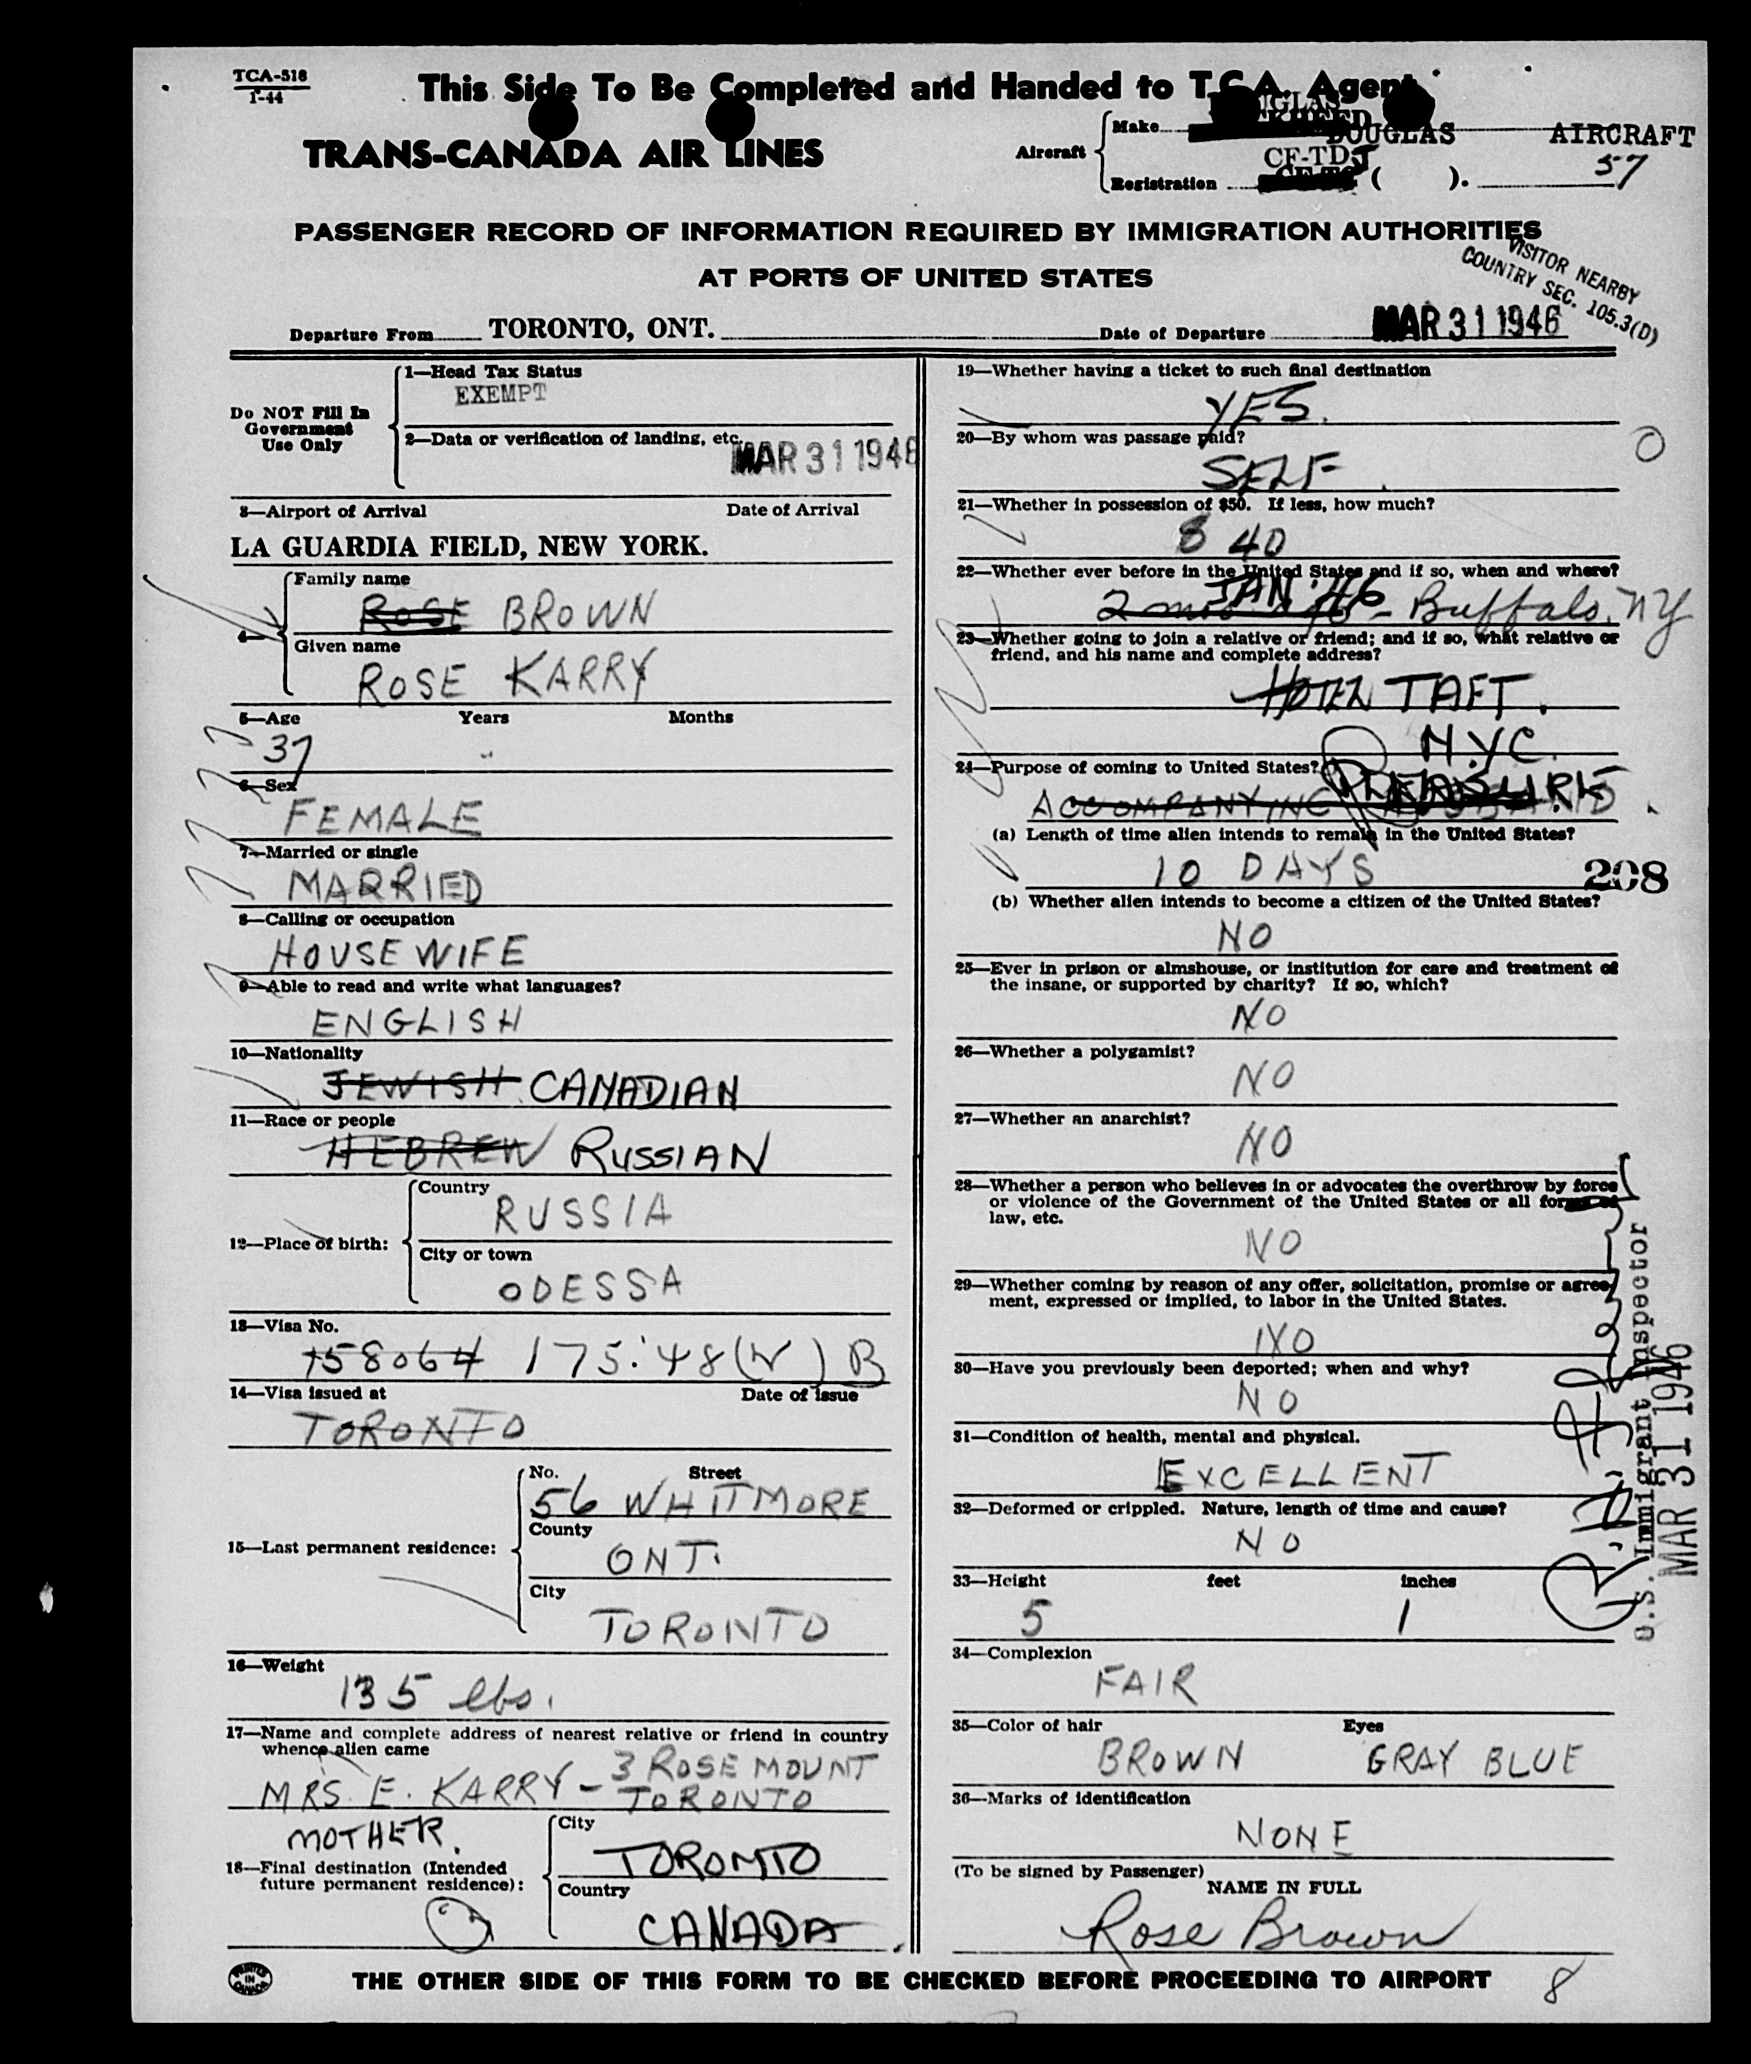 TCA-518
1-44
This Side To Be Completed and Handed to T.C.A. Agent
TRANS-CANADA AIR LINES
Aircraft
Make
DOUGLAS AIRCRAFT
CF-TDJ
Registration ( ). 57
PASSENGER RECORD OF INFORMATION REQUIRED BY IMMIGRATION AUTHORITIES
AT PORTS OF UNITED STATES
VISITOR NEARBY
COUNTRY SEC. 105.3(D)
Departure From TORONTO, ONT. Date of Departure MAR 31 1946
Do NOT Fill In
Government
Use Only
1—Head Tax Status
EXEMPT
2—Data or verification of landing, etc.
MAR 31 1946
3—Airport of Arrival Date of Arrival
LA GUARDIA FIELD, NEW YORK.
4—
Family name
ROSE BROWN
Given name
ROSE KARRY
5—Age Years Months
37
6—Sex
FEMALE
7—Married or single
MARRIED
8—Calling or occupation
HOUSEWIFE
9—Able to read and write what languages?
ENGLISH
10—Nationality
JEWISH CANADIAN
11—Race or people
HEBREW RUSSIAN
12—Place of birth:
Country
RUSSIA
City or town
ODESSA
13—Visa No.
158064 175.48(W) B
14—Visa issued at Date of issue
TORONTO
15—Last permanent residence:
No. Street
56 WHITMORE
County
ONT.
City
TORONTO
16—Weight
135 lbs.
17—Name and complete address of nearest relative or friend in country
whence alien came
MRS. E. KARRY – 3 ROSEMOUNT
TORONTO
MOTHER.
18—Final destination (Intended
future permanent residence):
City
TORONTO
Country
CANADA
19—Whether having a ticket to such final destination
YES.
20—By whom was passage paid?
SELF
21—Whether in possession of $50. If less, how much?
$ 40
22—Whether ever before in the United States and if so, when and where?
JAN '46
Buffalo, NY
23—Whether going to join a relative or friend; and if so, what relative or
friend, and his name and complete address?
HOTEL TAFT.
N.Y.C.
24—Purpose of coming to United States?
PLEASURE
ACCOMPANYING HUSBAND.
(a) Length of time alien intends to remain in the United States?
10 DAYS
208
(b) Whether alien intends to become a citizen of the United States?
NO
25—Ever in prison or almshouse, or institution for care and treatment of
the insane, or supported by charity? If so, which?
NO
26—Whether a polygamist?
NO
27—Whether an anarchist?
NO
28—Whether a person who believes in or advocates the overthrow by force
or violence of the Government of the United States or all forms of
law, etc.
NO
29—Whether coming by reason of any offer, solicitation, promise or agree-
ment, expressed or implied, to labor in the United States.
NO
30—Have you previously been deported; when and why?
NO
31—Condition of health, mental and physical.
EXCELLENT
32—Deformed or crippled. Nature, length of time and cause?
NO
33—Height feet inches
5 1
34—Complexion
FAIR
35—Color of hair Eyes
BROWN GRAY BLUE
36—Marks of identification
NONE
(To be signed by Passenger)
NAME IN FULL
Rose Brown
U.S. Immigrant Inspector
MAR 31 1946
PRINTED
IN
CANADA
THE OTHER SIDE OF THIS FORM TO BE CHECKED BEFORE PROCEEDING TO AIRPORT
8